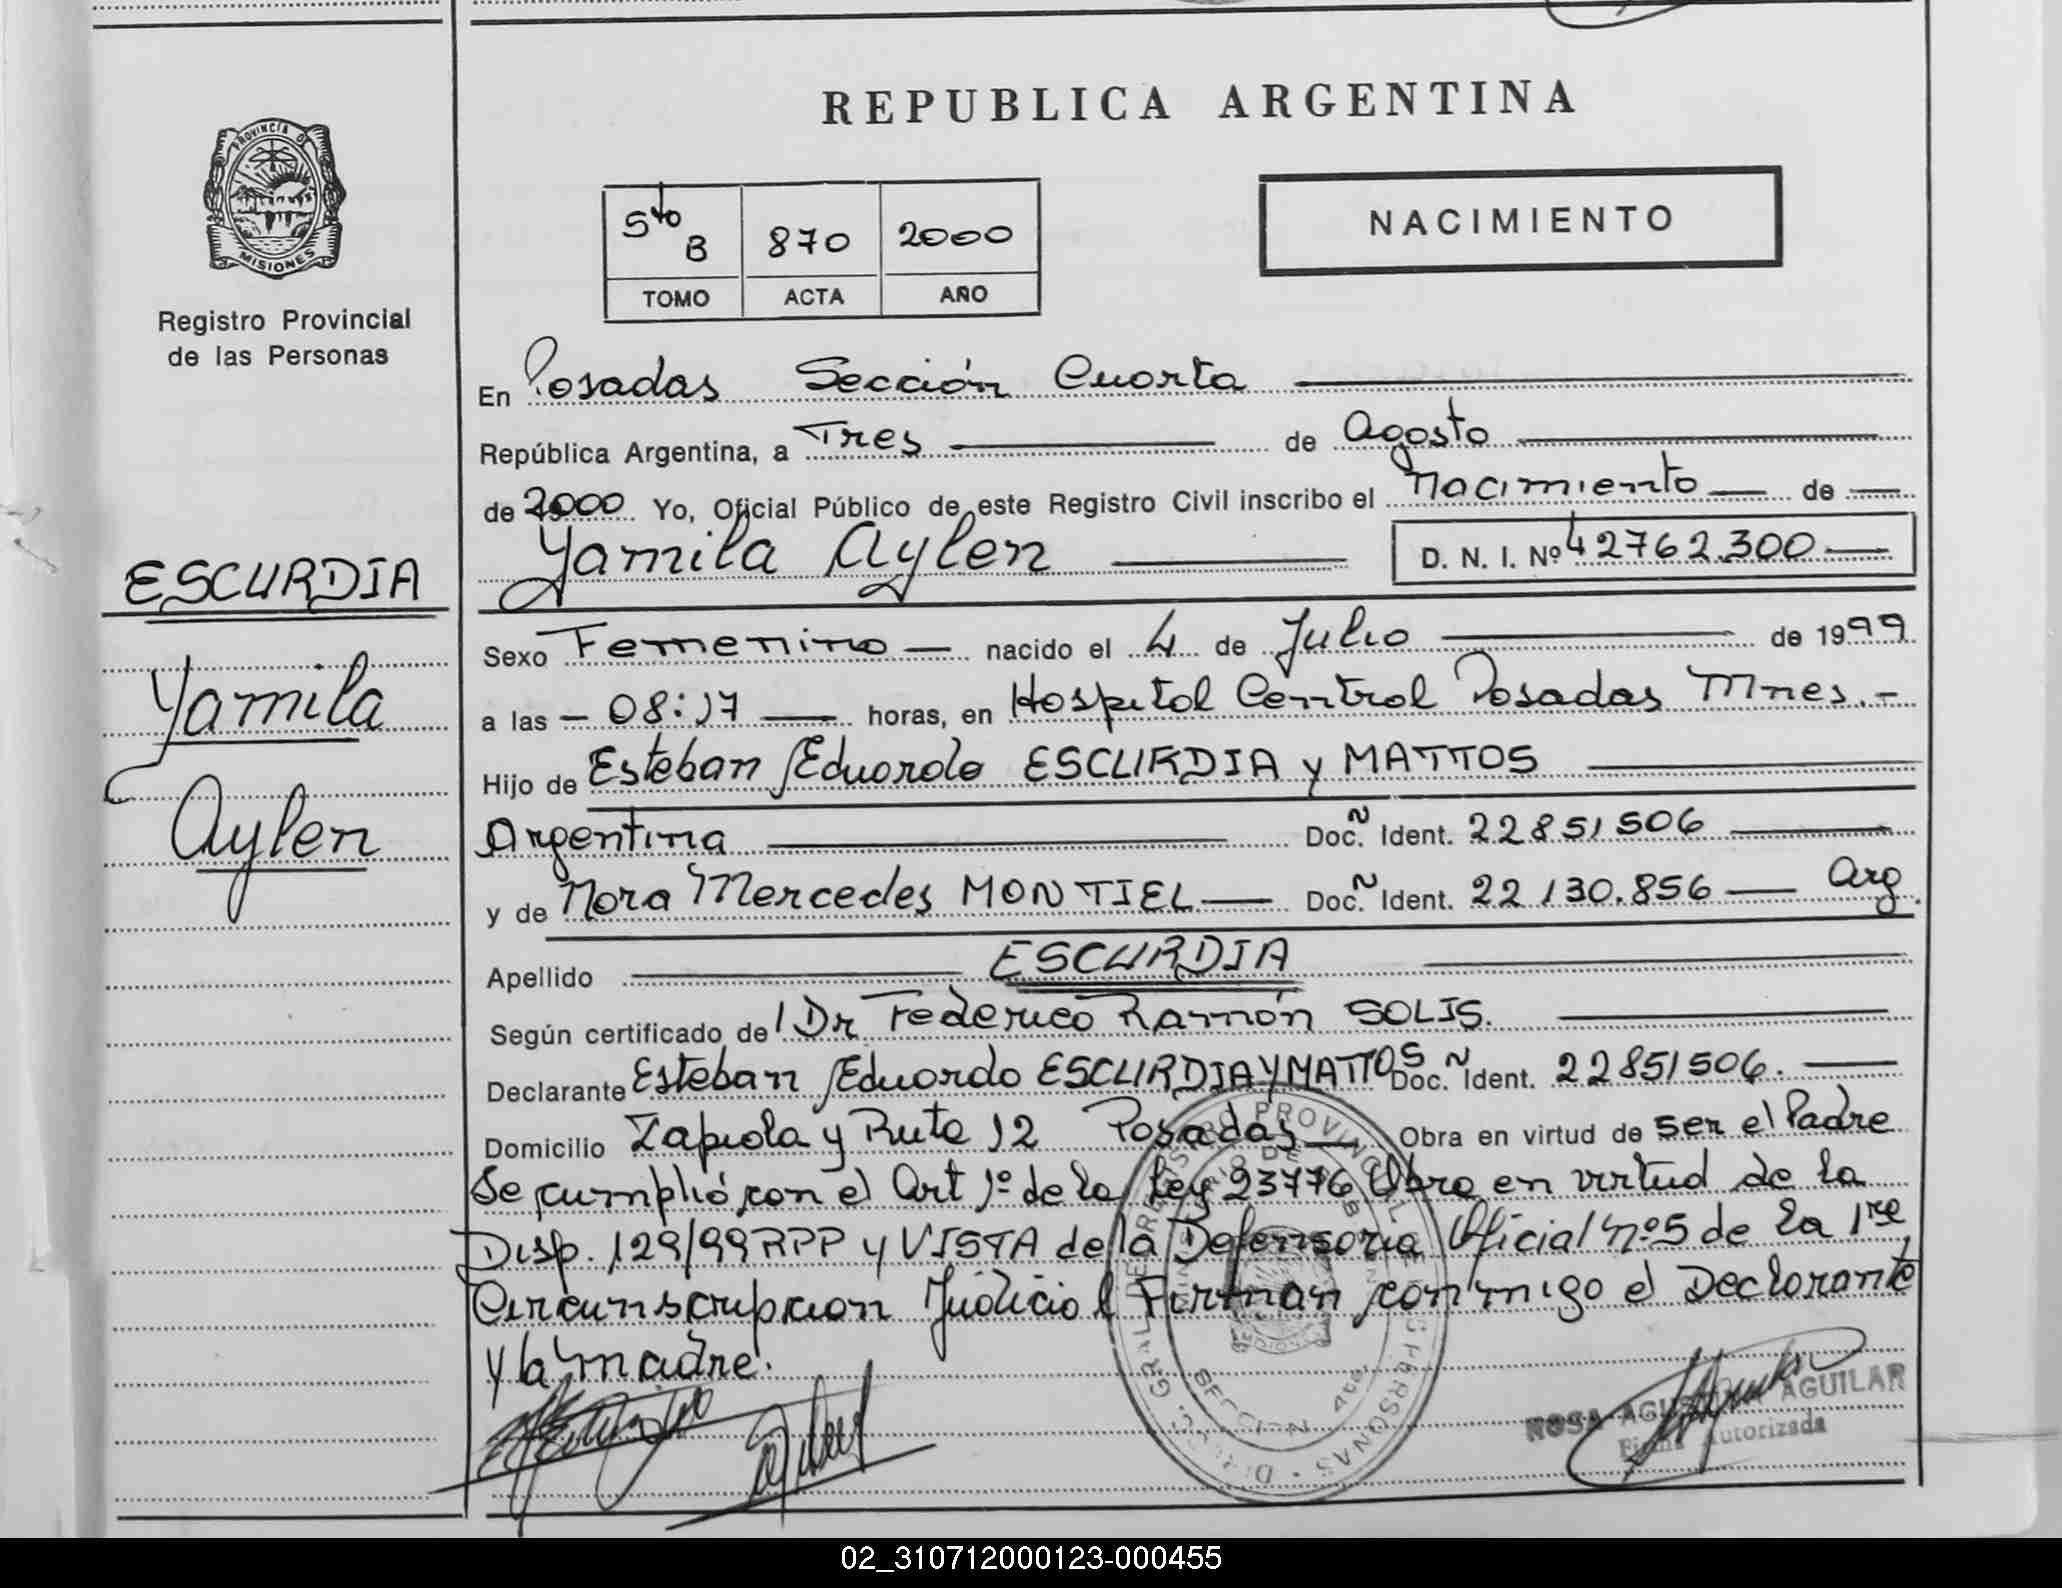 REPUBLICA ARGENTINA
PROVINCIA DE
MISIONES
Registro Provincial
de las Personas
5to B 870 2000
TOMO ACTA AÑO
NACIMIENTO
En Posadas Sección Cuarta
República Argentina, a Tres de Agosto
de 2000 Yo, Oficial Público de este Registro Civil inscribo el Nacimiento de
Yamila Aylen D. N. I. Nº 42762.300
ESCURDIA
Yamila
Aylen
Sexo Femenino nacido el 4 de Julio de 1999
a las 08:17 horas, en Hospital Central Posadas Mnes.
Hijo de Esteban Eduardo ESCURDIA y MATTOS
Argentina Doc. N Ident. 22851506
y de Nora Mercedes MONTIEL Doc. N Ident. 22130.856 Arg.
Apellido ESCURDIA
Según certificado de Dr Federico Ramón SOLIS.
Declarante Esteban Eduardo ESCURDIA Y MATTOS Doc. N Ident. 22851506.
Domicilio Zapiola y Ruta 12 Posadas Obra en virtud de ser el Padre
Se cumplió con el Art 1º de la Ley 23776 Obra en virtud de la
Disp. 129/99 RPP y VISTA de la Defensoria Oficial nº5 de la 1ra
Circunscripcion Judicial Firman conmigo el Declarante
y la madre.
ROSA AGUSTINA AGUILAR
Firma Autorizada
SECCION 4ta.
02_310712000123-000455